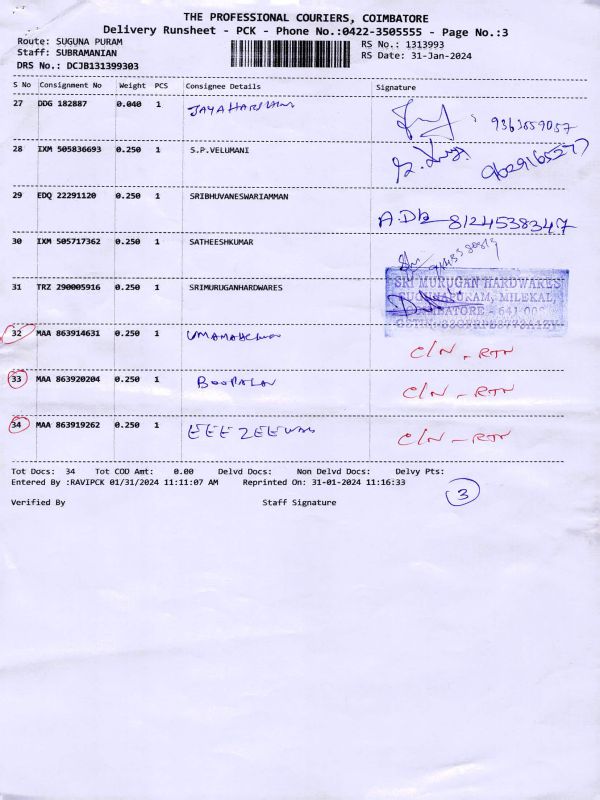 THE PROFESSIONAL COURIERS, COIMBATORE
Delivery Runsheet - PCK - Phone No.:0422-3505555 - Page No.:3
Route: SUGUNA PURAM RS No.: 1313993
Staff: SUBRAMANIAN RS Date: 31-Jan-2024
DRS No.: DCJB131399303
S No Consignment No Weight PCS Consignee Details Signature
27 DDG 182887 0.040 1
28 IXM 505836693 0.250 1 S.P.VELUMANI
9629165277
29 EDQ 22291120 0.250 1 SRIBHUVANESWARIAMMAN
8124538347
30 IXM 505717362 0.250 1 SATHEESHKUMAR
31 TRZ 290005916 0.250 1 SRIMURUGANHARDWARES
SRI MURUGAN HARDWARES
SUGUNAPURAM, MILEKAL,
COIMBATORE - 641 008
32 MAA 863914631 0.250 1
C/N - RTN
33 MAA 863920204 0.250 1 BOOPALAN
C/N - RTN
34 MAA 863919262 0.250 1
C/N - RTN
Tot Docs: 34 Tot COD Amt: 0.00 Delvd Docs: Non Delvd Docs: Delvy Pts:
Entered By :RAVIPCK 01/31/2024 11:11:07 AM Reprinted On: 31-01-2024 11:16:33
3
Verified By Staff Signature